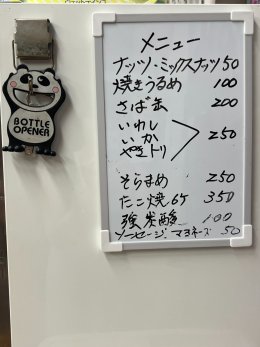 BOTTLE
OPENER
メニュー
ナッツ・ミックスナッツ 50
焼きうるめ 100
さば缶 200
いわし
いか
やきトリ
250
そらまめ 250
たこ焼6ケ 350
強炭酸 100
ソーセージ、マヨネーズ 50